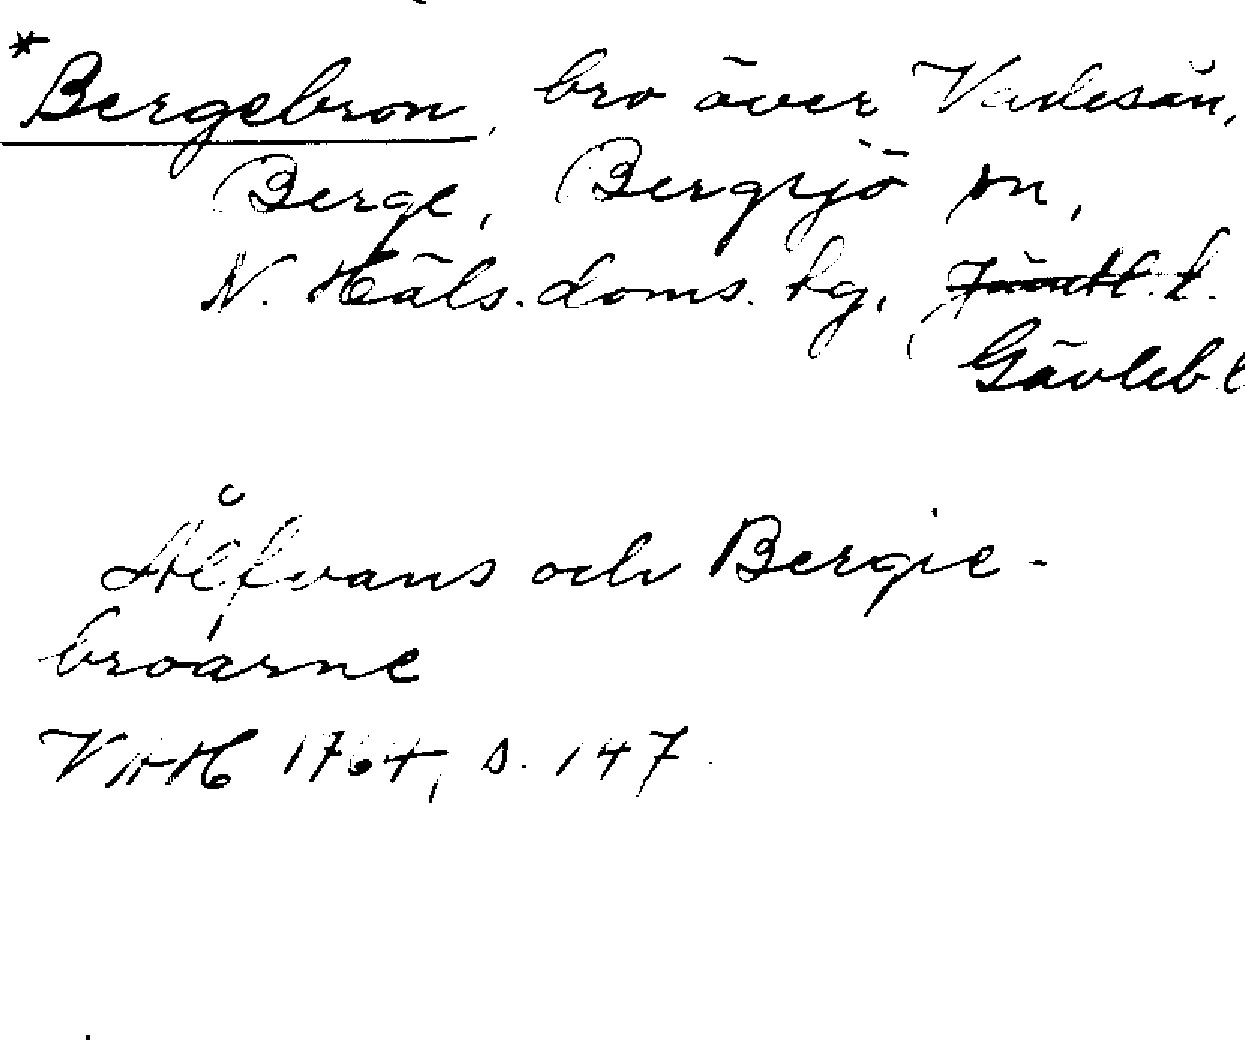 *Bergebron, bro över Vadesån,
Berge, Bergsjö sn,
N. Häls. doms. tg, Jämtl. l.
Gävleb l
Ålfvans och Bergie-
broarne
VAH 1764, s. 147.